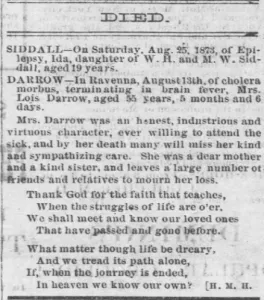 DIED.
SIDDALL—On Saturday, Aug. 25, 1873, of Epi-
lepsy, Ida, daughter of W. H. and M. W. Sid-
dall, aged 19 years.
DARROW—In Ravenna, August 13th, of cholera
morbus, terminating in brain fever, Mrs.
Lois Darrow, aged 55 years, 5 months and 6
days.
Mrs. Darrow was an honest, industrious and
virtuous character, ever willing to attend the
sick, and by her death many will miss her kind
and sympathizing care. She was a dear mother
and a kind sister, and leaves a large number of
friends and relatives to mourn her loss.
Thank God for the faith that teaches,
When the struggles of life are o'er,
We shall meet and know our loved ones
That have passed and gone before.
What matter though life be dreary.
And we tread its path alone,
If, when the journey is ended,
In heaven we know our own? [H. M. H.